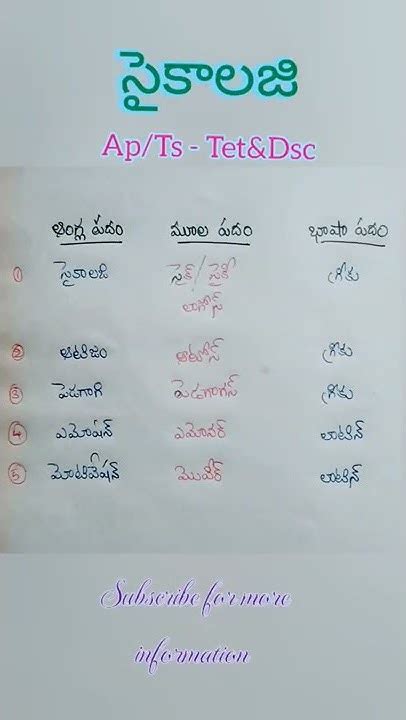 సైకాలజి
Ap/Ts - Tet&Dsc
ఆంగ్ల పదం మూల పదం భాషా పదం
① సైకాలజి సైక్ / సైకీ గ్రీకు
లాగోస్
② ఆటిజం ఆటోస్ గ్రీకు
③ పెడగాగి పెడగాగస్ గ్రీకు
④ ఎమోషన్ ఎమోవర్ లాటిన్
⑤ మోటివేషన్ మొవీర్ లాటిన్
Subscribe for more
information